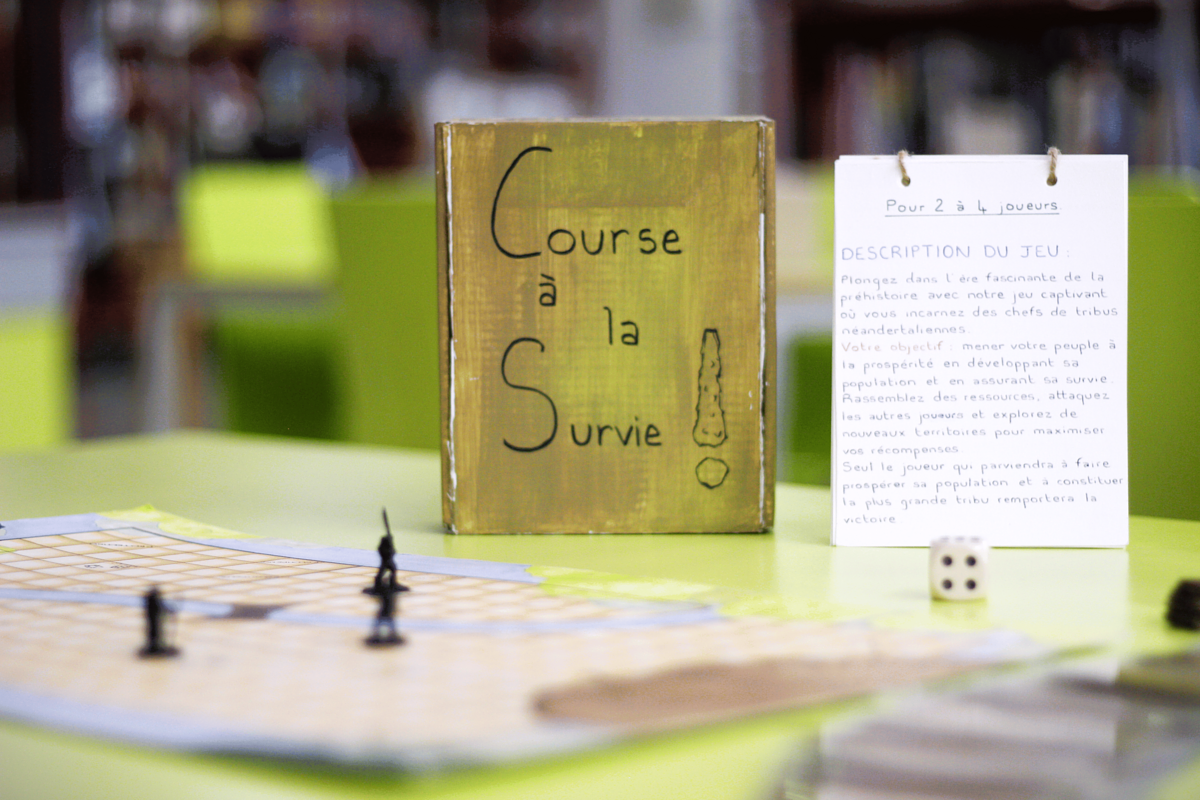 Course
à
la
Survie !
Pour 2 à 4 joueurs
DESCRIPTION DU JEU :
Plongez dans l'ère fascinante de la
préhistoire avec notre jeu captivant
où vous incarnez des chefs de tribus
néandertaliennes.
Votre objectif : mener votre peuple à
la prospérité en développant sa
population et en assurant sa survie.
Rassemblez des ressources, attaquez
les autres joueurs et explorez de
nouveaux territoires pour maximiser
vos récompenses.
Seul le joueur qui parviendra à faire
prospérer sa population et à constituer
la plus grande tribu remportera la
victoire.